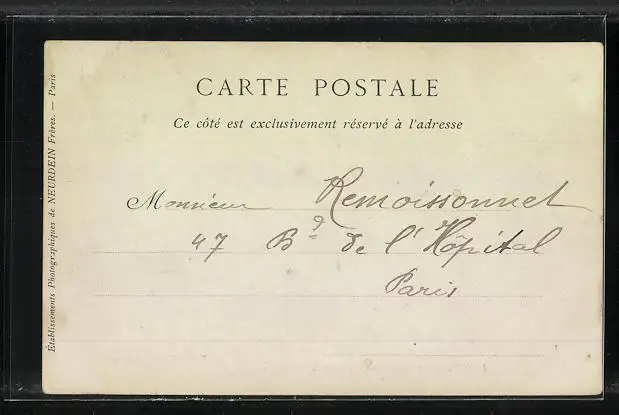 CARTE POSTALE
Ce côté est exclusivement réservé à l'adresse
Monsieur Remoissonnet
47 Bd de l'Hôpital
Paris
Établissements Photographiques de NEURDEIN Frères. — Paris